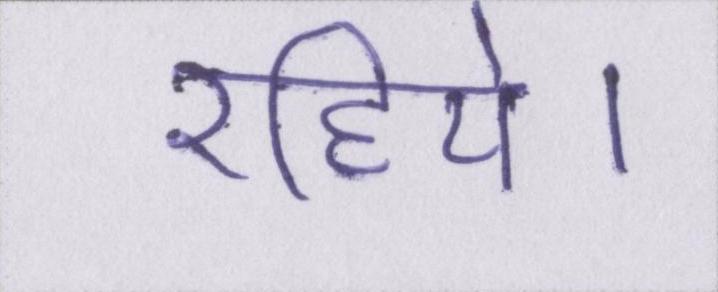 रहिये।